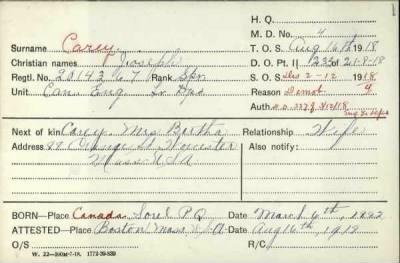 1
H. Q.
M. D. No. 4
Surname Carey T. O. S. Aug 16th 1918
Christian names Joseph D. O. Pt. II 235 of 21-8-18
Regtl. No. 2014267 Rank Spr S. O. S. Dis 2-12 1918
Unit Can. Eng. Tr Dps Reason Demob
Auth.
Next of kin Carey Mrs Bertha Relationship Wife
Address 88 Orange St. Worcester Also notify:
Mass USA
BORN—Place Canada Sorel P.Q. Date March 6th, 1882
ATTESTED—Place Boston Mass U.S.A. Date Aug 16th, 1918
O/S R/C
W. 22—300M-7-18. 1772-39-839